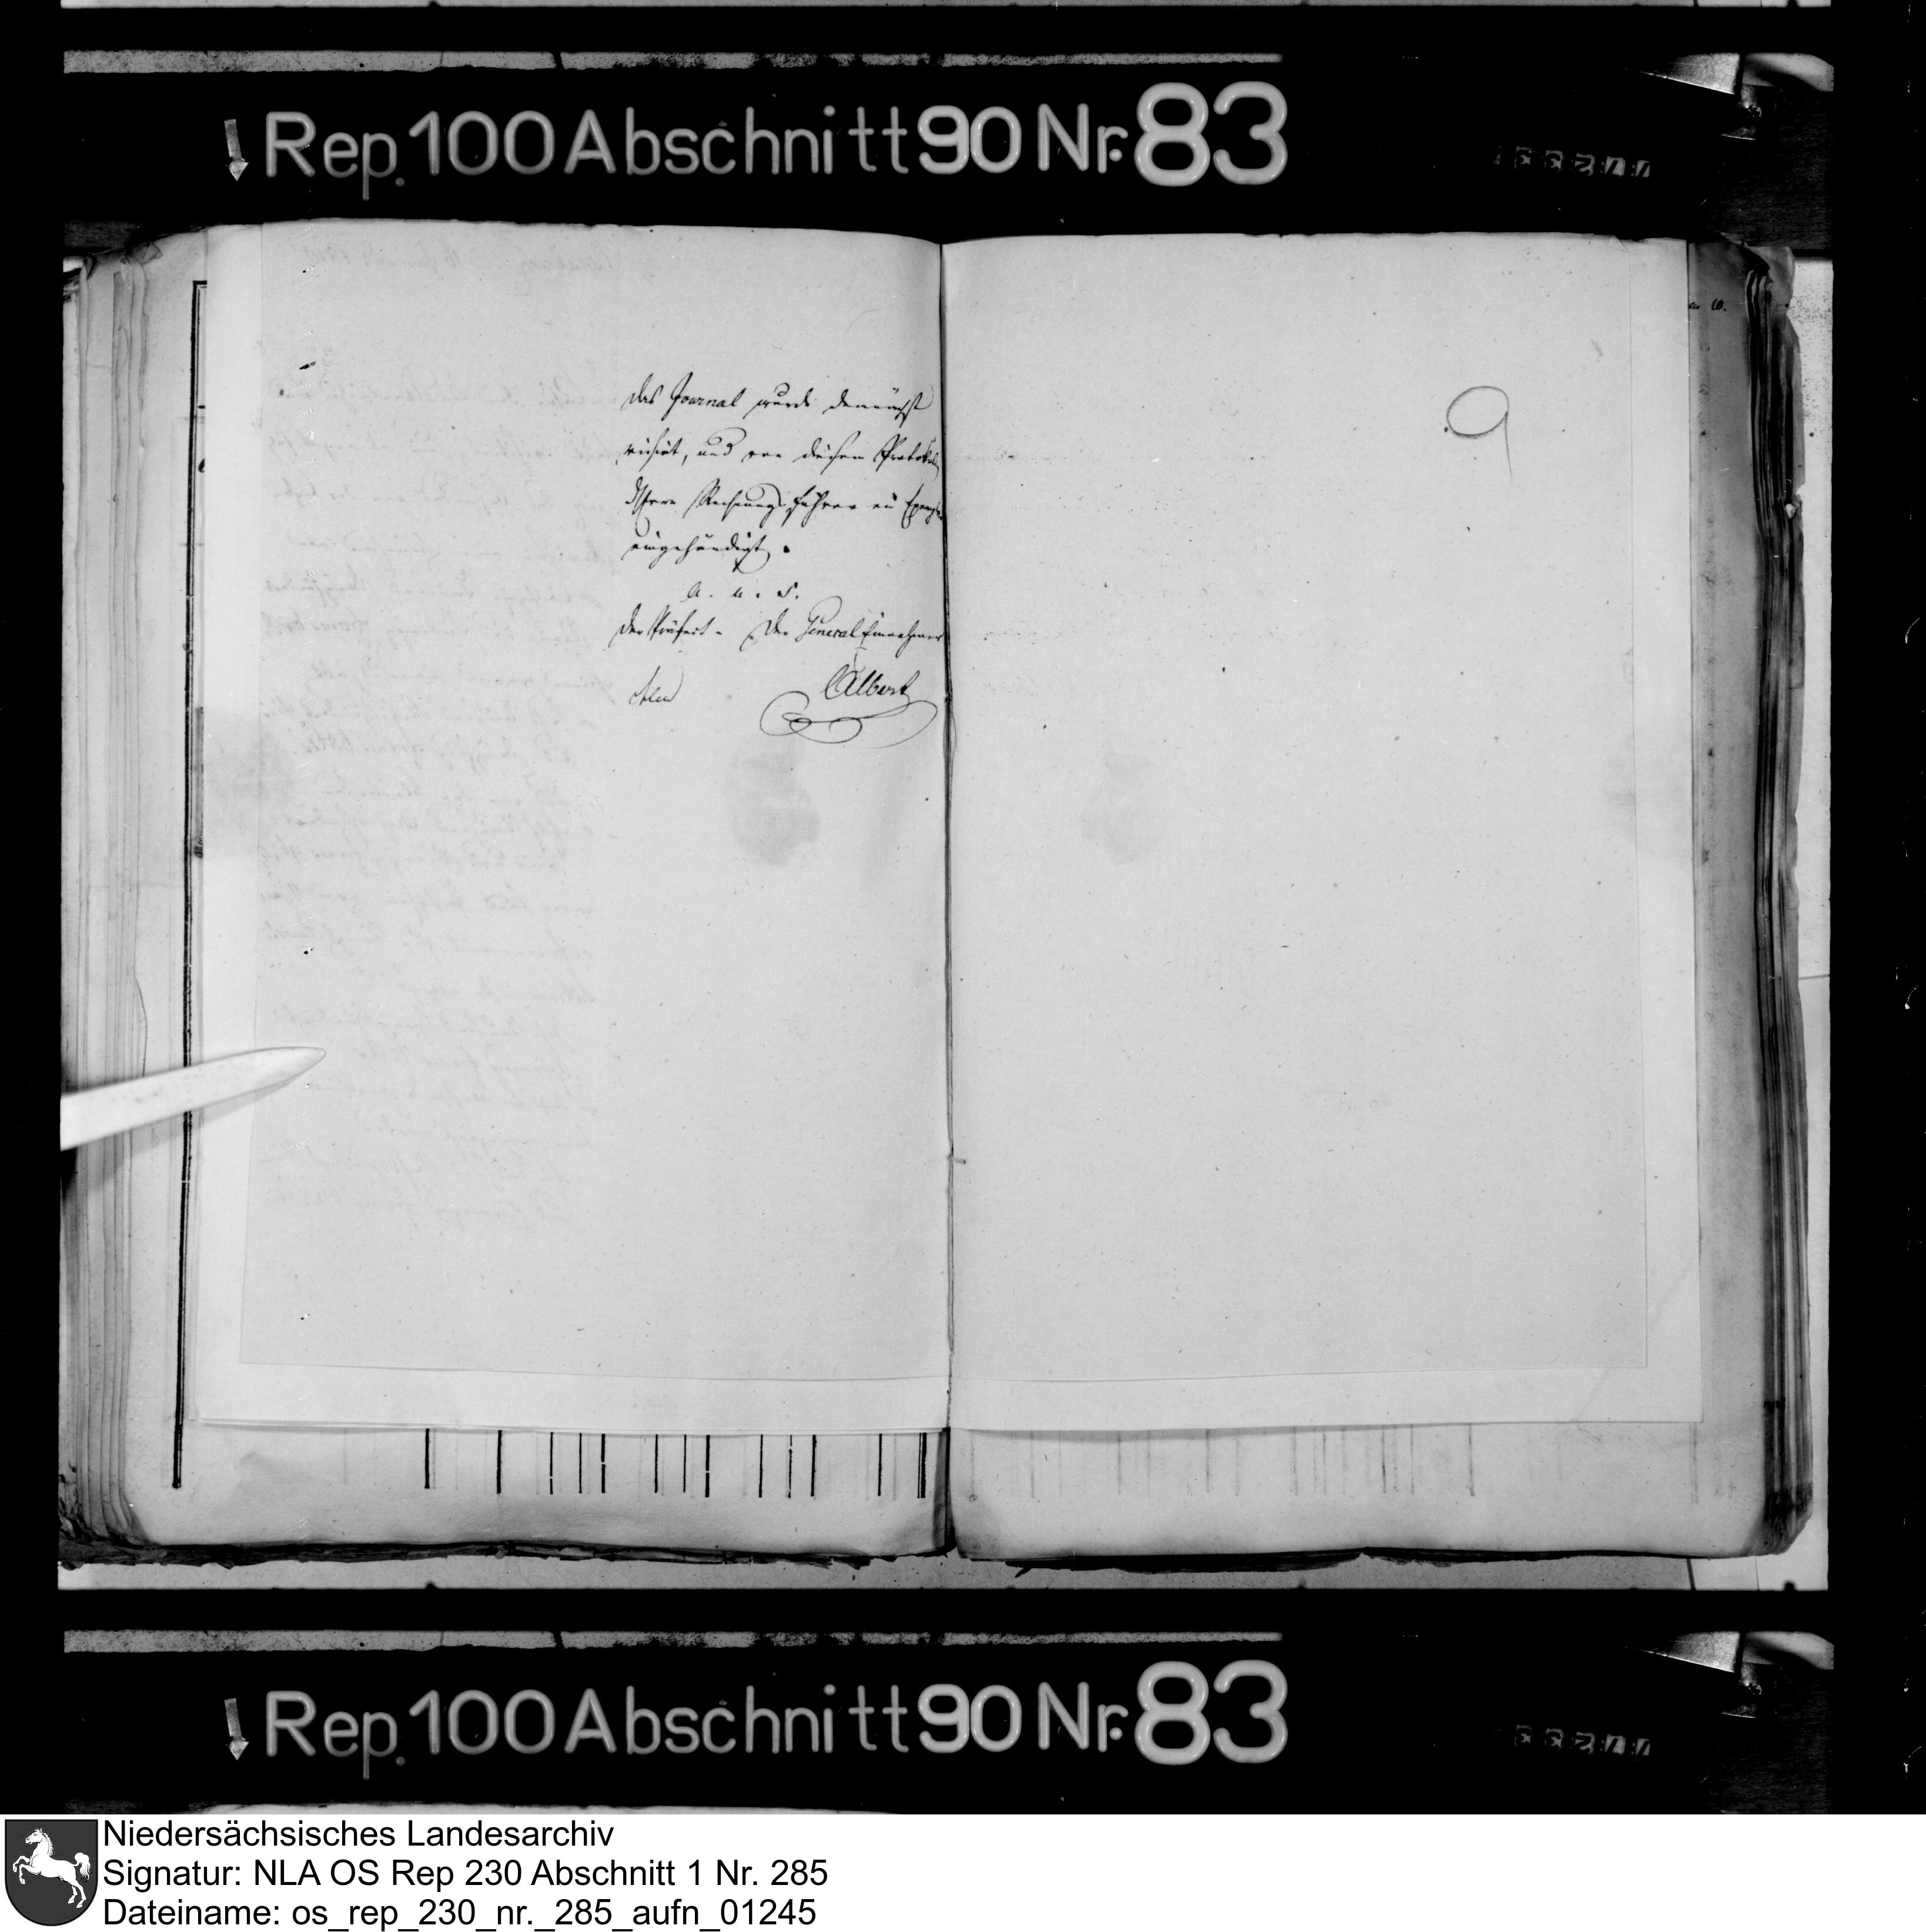 Rep. 100 Abschnitt 90 Nr. 83
das Journal wurde demnächst
visirt, und von diesem Protokoll
Rechnungsführer ein Exemplar
eingehändigt.
a. u. s.
der Präfect. Der General Einnehmer
Albert
9
Rep. 100 Abschnitt 90 Nr. 83
Niedersächsisches Landesarchiv
Signatur: NLA OS Rep 230 Abschnitt 1 Nr. 285
Dateiname: os_rep_230_nr._285_aufn_01245